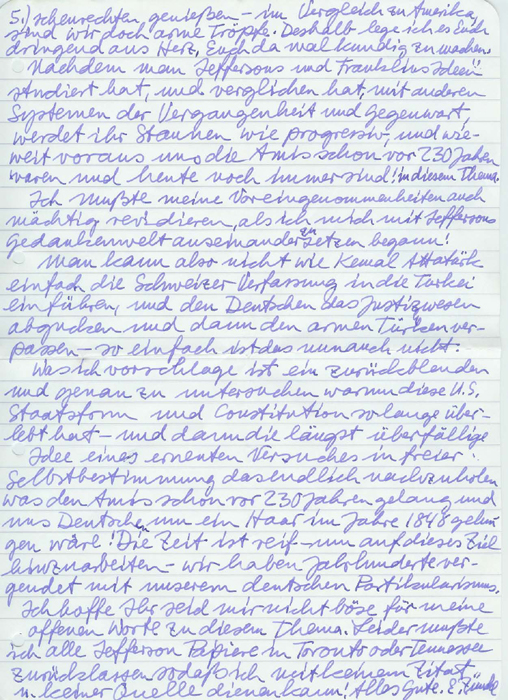 5.) schenrechten, genießen – im Vergleich zu Amerika,
sind wir doch arme Tröpfe. Deshalb lege ich es Euch
dringend aus Herz, Euch da mal kundig zu machen.
Nachdem man Jeffersons und Franklins Ideen
studiert hat, und verglichen hat, mit anderen
Systemen der Vergangenheit und Gegenwart,
werdet ihr Staunen wie progressiv, und wie-
weit voraus uns die Amis schon vor 230 Jahren
waren und heute noch immer sind! in diesem Thema.
Ich mußte meine Voreingenommenheiten auch
mächtig revidieren, als ich mich mit Jeffersons
Gedankenwelt auseinander zu setzen begann!
Man kann also nicht wie Kemal Attatürk
einfach die Schweizer Verfassung in die Türkei
einführen, und den Deutschen das Justizwesen
abgucken und dann den armen Türken ver-
passen – so einfach ist das nun auch nicht.
Was ich vorschlage ist ein zurückblenden
und genau zu untersuchen warum diese U.S.
Staatsform und Constitution so lange über-
lebt hat – und dann die längst überfällige
Idee eines erneuten Versuches in freier
Selbstbestimmung das endlich nachzuholen
was den Amis schon vor 230 Jahren gelang und
uns Deutschen um ein Haar im Jahre 1848 gelun
gen wäre! Die Zeit ist reif – um auf dieses Ziel
hinzuarbeiten – wir haben Jahrhunderte ver-
geudet mit unserem deutschen Partikularismus.
Ich hoffe Ihr seid mir nicht böse für meine
offenen Worte zu diesem Thema. Leider mußte
ich alle Jefferson Papiere in Toronto oder Tennessee
zurücklassen sodaß ich mit keinem Zitat
u. keiner Quelle dienen kann, Alles Gute.